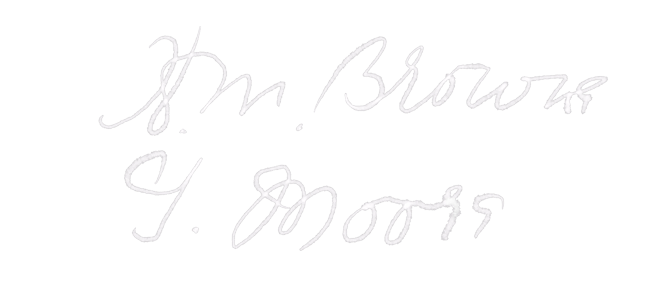 Wm. Brown
G. Moore